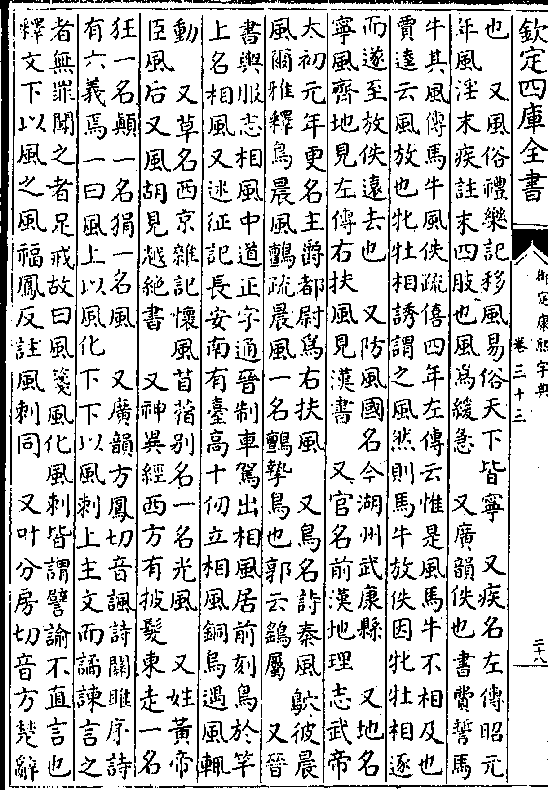 欽定四庫全書
御定康熙字典
卷三十三
二十八
也　又風俗禮樂記移風易俗天下皆寧　又疾名左傳昭元
年風淫末疾註末四肢也風為緩急　又廣韻佚也書費誓馬
牛其風傳馬牛風佚疏僖四年左傳云惟是風馬牛不相及也
賈逵云風放也牝牡相誘謂之風然則馬牛放佚因牝牡相逐
而遂至放佚遠去也　又防風國名今湖州武康縣　又地名
寧風齊地見左傳右扶風見漢書　又官名前漢地理志武帝
太初元年更名主爵都尉為右扶風　又鳥名詩秦風鴥彼晨
風爾雅釋鳥晨風鸇疏晨風一名鸇摯鳥也郭云鷂屬　又晉
書輿服志相風中道正字通晉制車駕出相風居前刻烏於竿
上名相風又述征記長安南有臺高十仞立相風銅烏遇風輒
動　又草名西京雜記懷風苜蓿別名一名光風　又姓黃帝
臣風后又風胡見越絕書　又神異經西方有披髮東走一名
狂一名顛一名狷一名風　又廣韻方鳳切音諷詩關雎序詩
有六義焉一曰風上以風化下下以風刺上主文而譎諫言之
者無罪聞之者足戒故曰風箋風化風刺皆謂譬諭不直言也
釋文下以風之風福鳳反註風刺同　又叶分房切音方楚辭